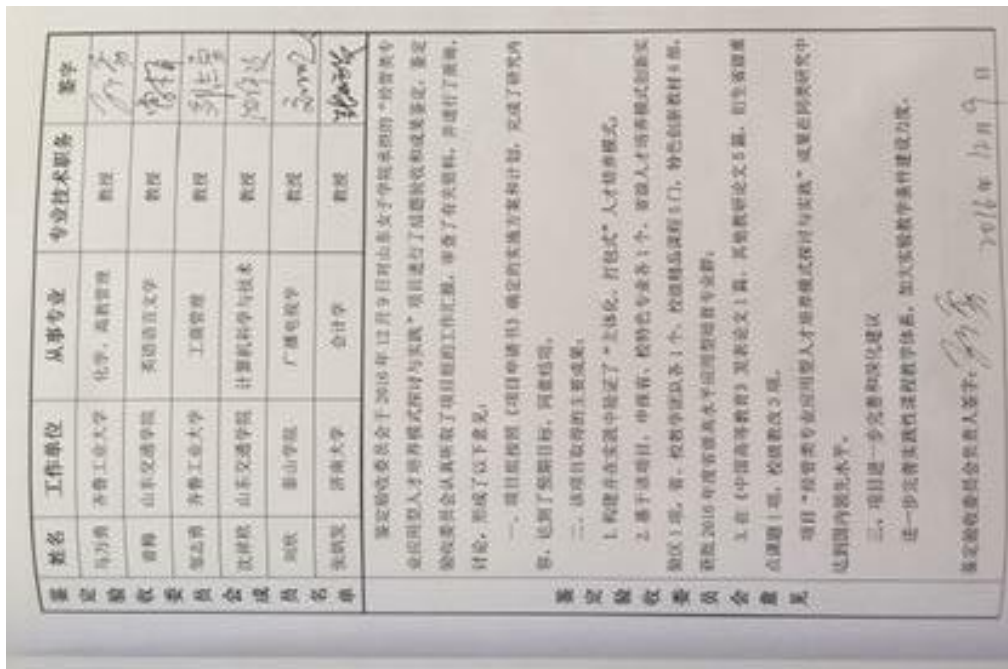 鉴定验收委员会成员名单
姓名 工作单位 从事专业 专业技术职务 签字
马万勇 齐鲁工业大学 化学、高教管理 教授
曹梅 山东交通学院 英语语言文学 教授
邹志勇 齐鲁工业大学 工商管理 教授
沈祥玖 山东交通学院 计算机科学与技术 教授
刘欣 泰山学院 广播电视学 教授
张炳发 济南大学 会计学 教授
鉴定验收委员会意见
鉴定验收委员会于 2016 年 12 月 9 日对山东女子学院承担的“经管类专
业应用型人才培养模式探讨与实践”项目进行了结题验收和成果鉴定。鉴定
验收委员会认真听取了项目组的工作汇报，审查了有关资料，并进行了质询、
讨论，形成了以下意见：
一、项目组按照《项目申请书》确定的实施方案和计划，完成了研究内
容，达到了预期目标，同意结项。
二、该项目取得的主要成果：
1. 构建并在实践中验证了“立体化、打包式”人才培养模式。
2. 基于该项目，申报省、校特色专业各 1 个，省级人才培养模式创新实
验区 1 项，省、校教学团队各 1 个，校级精品课程 5 门，特色创新教材 6 部，
获批 2016 年度省级高水平应用型培育专业群；
3. 在《中国高等教育》发表论文 1 篇，其他教研论文 5 篇，衍生省级重
点课题 1 项，校级教改 3 项。
项目“经管类专业应用型人才培养模式探讨与实践”成果在同类研究中
达到国内领先水平。
三、项目进一步完善和深化建议
进一步完善实践性课程教学体系，加大实验教学条件建设力度。
鉴定验收委员会负责人签字：
2016 年 12 月 9 日